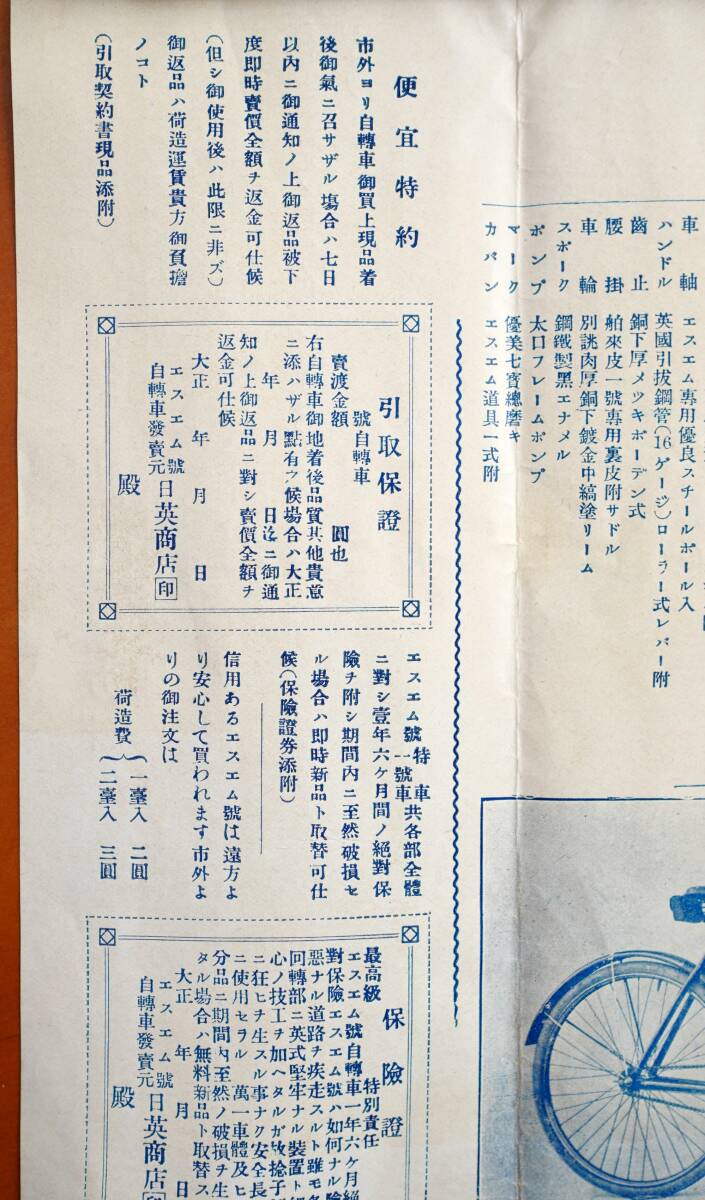 車軸 エスエム専用優良スチールボール入
ハンドル 英國引拔鋼管(16ゲージ)ローラー式レバー附
齒止 銅下厚メツキボーデン式
腰掛 舶來皮一號専用裏皮附サドル
車輪 別誂肉厚銅下鍍金中縞塗リーム
スポーク 鋼鐵製黒エナメル
ポンプ 太口フレームポンプ
マーク 優美七寳總磨キ
カバン エスエム道具一式附
便宜特約
市外ヨリ自轉車御買上現品着
後御氣ニ召サザル塲合ハ七日
以内ニ御通知ノ上御返品被下
度即時賣價全額ヲ返金可仕候
(但シ御使用後ハ此限ニ非ズ)
御返品ハ荷造運賃貴方御負擔
ノコト
(引取契約書現品添附)
引取保證
號自轉車
賣渡金額 圓也
右自轉車御地着後品質其他貴意
ニ添ハザル點有之候場合ハ大正
年 月 日迄ニ御通
知ノ上御返品ニ對シ賣價全額ヲ
返金可仕候
大正 年 月 日
エスエム號
自轉車發賣元 日英商店 印
殿
エスエム號 特車 一號車 共各部全體
ニ對シ壹年六ケ月間ノ絕對保
險ヲ附シ期間内ニ至然破損セ
ル場合ハ即時新品ト取替可仕
候(保險證券添附)
信用あるエスエム號は遠方よ
り安心して買われます市外よ
りの御注文は
荷造費 一臺入 二圓
二臺入 三圓
保險證
最高級 特別責任
エスエム號自轉車一年六ケ月絕
對保險エスエム號ハ如何ナル險
惡ナル道路ヲ疾走スルト雖モ各
回轉部ニ英式堅牢ナル裝置ト
心ノ技工ヲ加ヘタルガ故捻子
ニ狂ヒヲ生スル事ナク安全長
ニ使用セラル 萬一車體及ヒ
分品ニ期間内至然ノ破損ヲ生
タル場合ハ無料新品ト取替ス
大正 年 月 日
エスエム號
自轉車發賣元 日英商店 印
殿